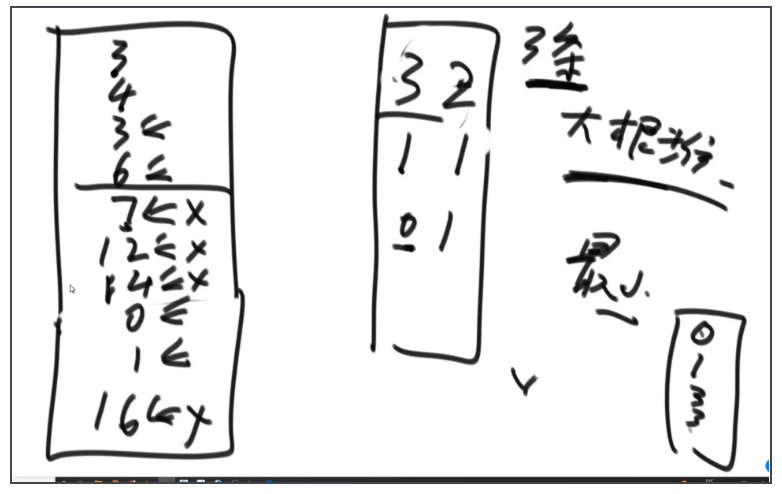 3
4
3←
6←
7←x
12←x
14←x
0←
1←
16←x
3 2
1 1
0 1
大根
最小
0
1
3
3